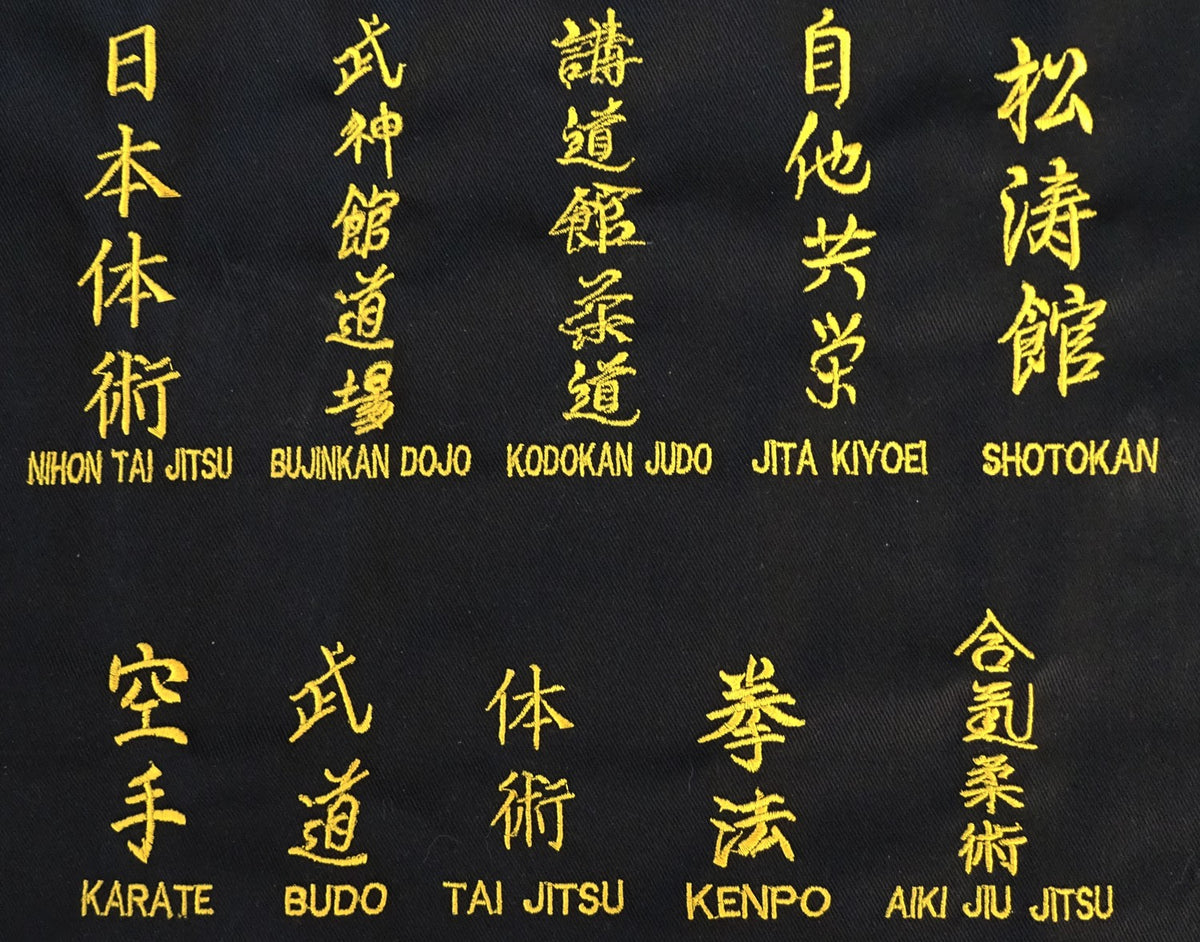 日本体術
NIHON TAI JITSU
武神館道場
BUJINKAN DOJO
講道館柔道
KODOKAN JUDO
自他共栄
JITA KIYOEI
松涛館
SHOTOKAN
空手
KARATE
武道
BUDO
体術
TAI JITSU
拳法
KENPO
合氣柔術
AIKI JIU JITSU